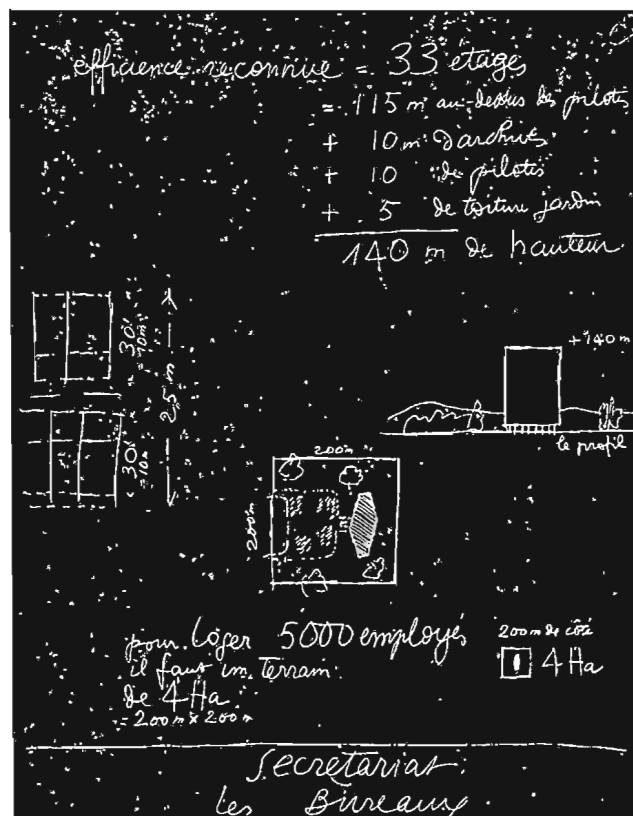 efficience reconnue = 33 étages
= 115 m au-dessus des pilotis
+ 10 m d'archives
+ 10 de pilotis
+ 5 de toiture jardin
140 m de hauteur
30' = 10m
25 m
30' = 10m
+140 m
le profil
200m
200m
pour loger 5000 employés
il faut un terrain
de 4 Ha
= 200 m x 200 m
200 m de côté
4 Ha
Secrétariat :
les Bureaux